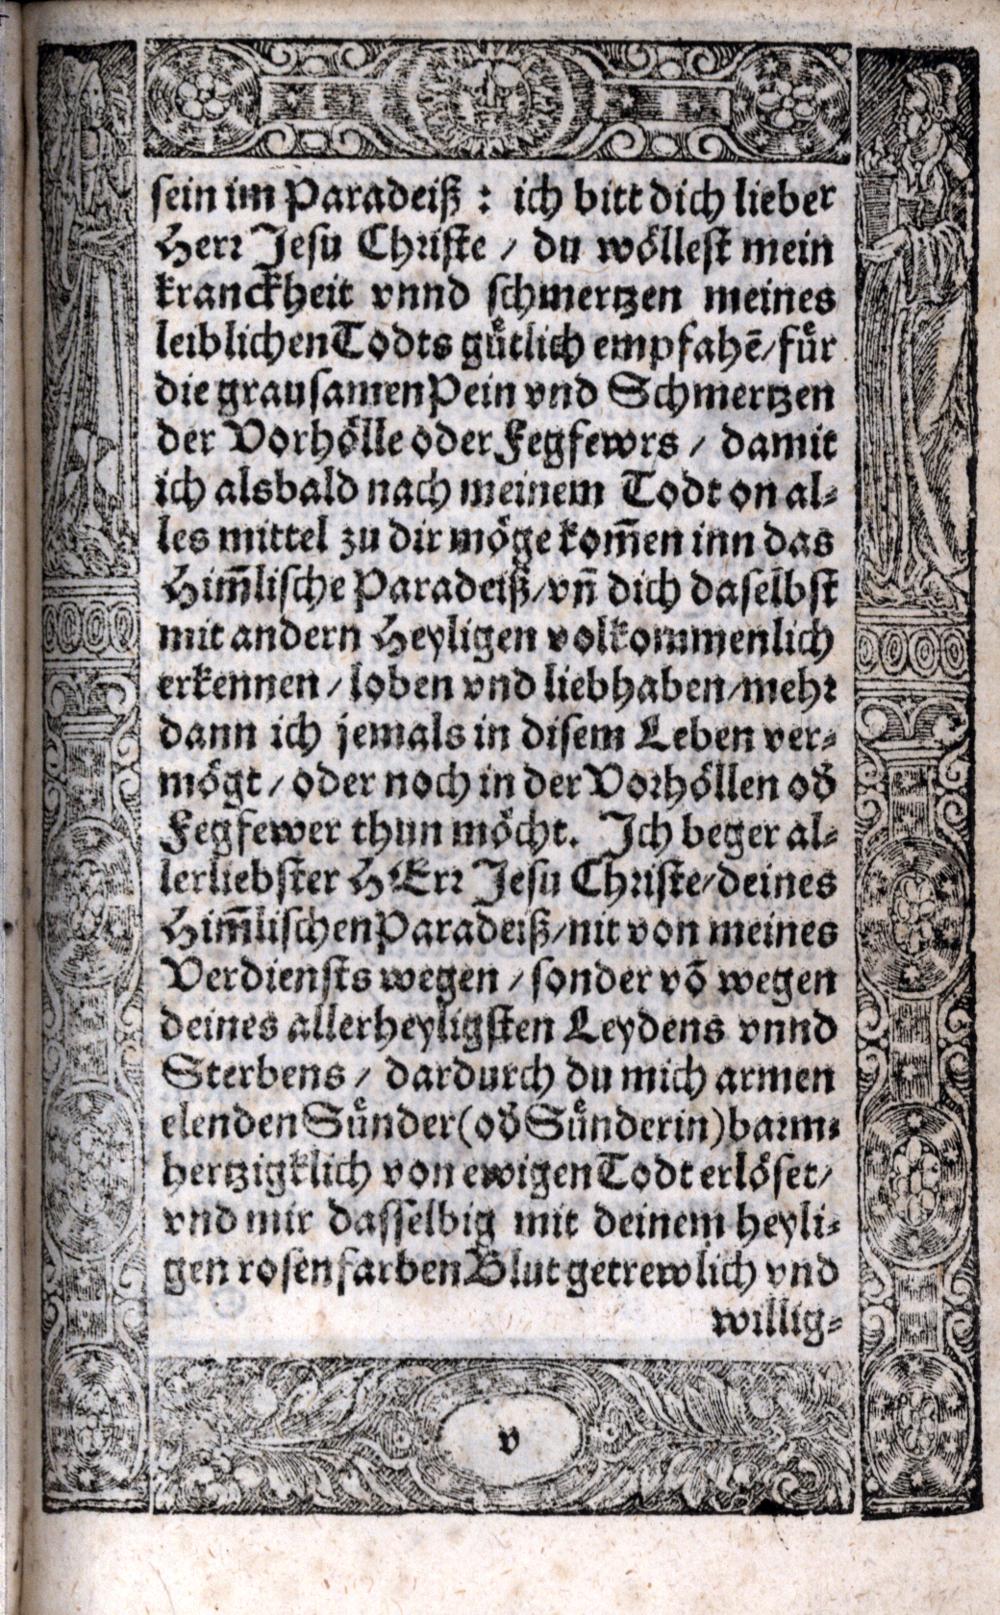 sein im Paradeiß : ich bitt dich lieber
Herr Jesu Christe / du wöllest mein
kranckheit vnnd schmertzen meines
leiblichen Todts gütlich empfahē / für
die grausamen Pein vnd Schmertzen
der Vorhölle oder Fegfewrs / damit
ich alsbald nach meinem Todt on al⸗
les mittel zu dir möge kom̄en inn das
Him̄lische Paradeiß / vn̄ dich daselbst
mit andern Heyligen volkommenlich
erkennen / loben vnd liebhaben / mehr
dann ich jemals in disem Leben ver⸗
mögt / oder noch in der Vorhöllen od̕
Fegfewer thun möcht. Ich beger al⸗
lerliebster HErr Jesu Christe / deines
Him̄lischen Paradeiß / nit von meines
Verdiensts wegen / sonder vō wegen
deines allerheyligsten Leydens vnnd
Sterbens / dardurch du mich armen
elenden Sünder (od̕ Sünderin) barm⸗
hertzigklich von ewigen Todt erlöset /
vnd mir dasselbig mit deinem heyli⸗
gen rosenfarben Blut getrewlich vnd
willig⸗
v